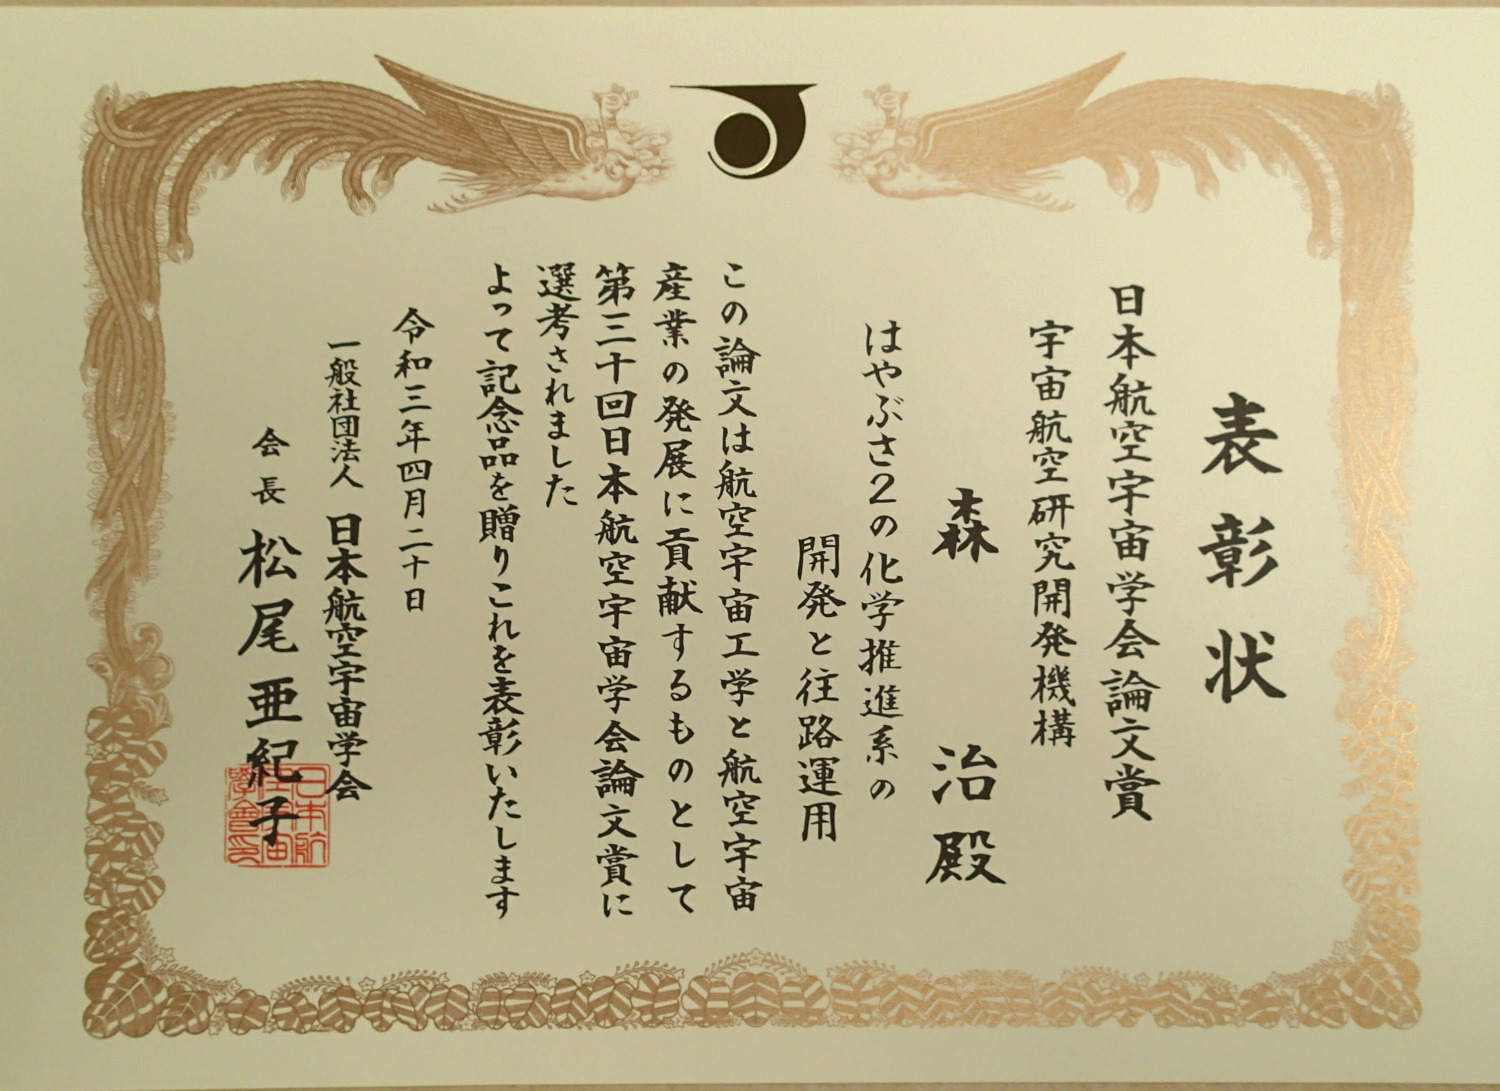 表彰状
日本航空宇宙学会論文賞
宇宙航空研究開発機構
森 治 殿
はやぶさ2の化学推進系の
開発と往路運用
この論文は航空宇宙工学と航空宇宙
産業の発展に貢献するものとして
第三十回日本航空宇宙学会論文賞に
選考されました
よって記念品を贈りこれを表彰いたします
令和三年四月二十日
一般社団法人 日本航空宇宙学会
会長 松尾亜紀子